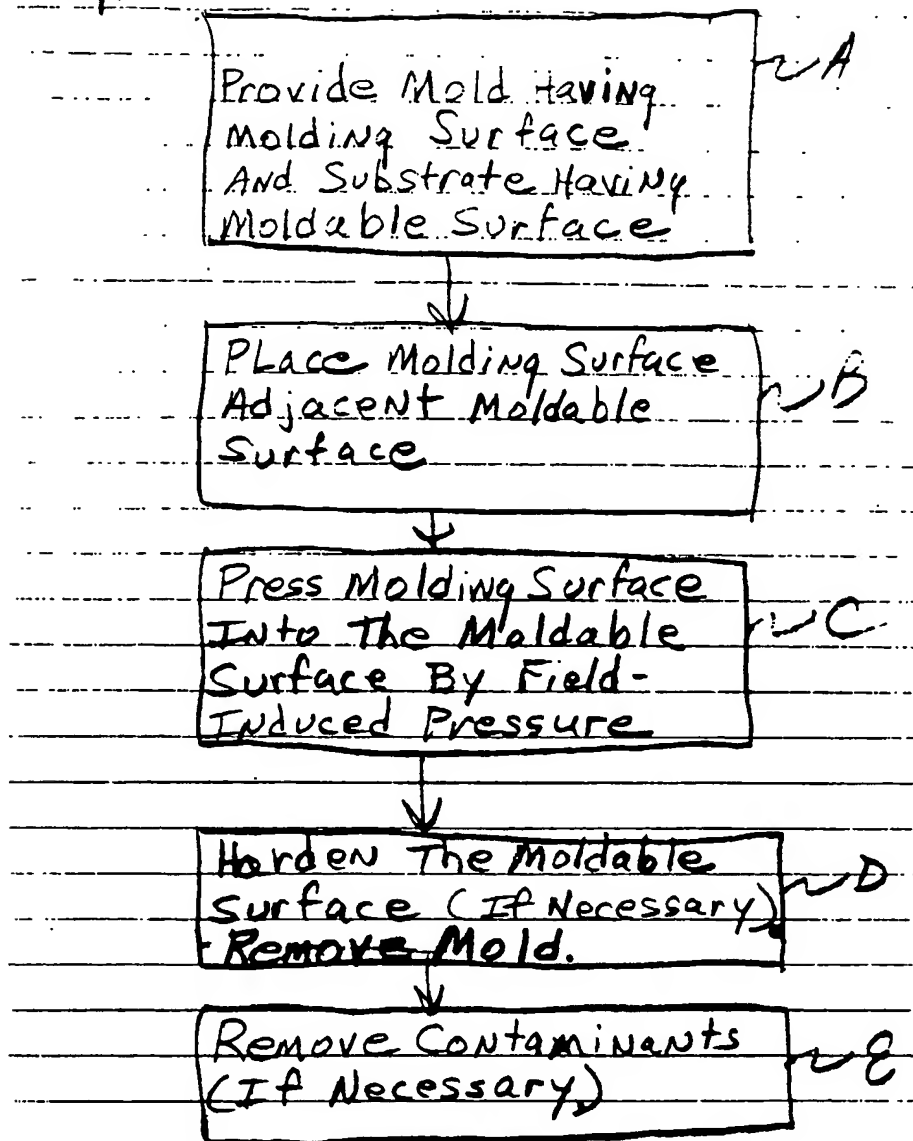 Provide Mold Having
Molding Surface
And Substrate Having
Moldable Surface
A
Place Molding Surface
Adjacent Moldable
Surface
B
Press Molding Surface
Into The Moldable
Surface By Field-
Induced Pressure
C
Harden The Moldable
Surface (If Necessary),
Remove Mold.
D
Remove Contaminants
(If Necessary)
E